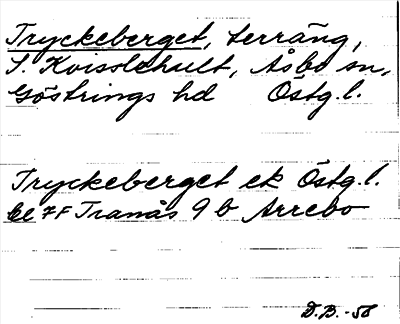 Tryckeberget, terräng,
S. Kvisslehult, Åsbo sn,
Göstrings hd Östg.l.
Tryckeberget ek Östg.l.
bl 7F Tranås 9 b Arrebo
D.B. -58